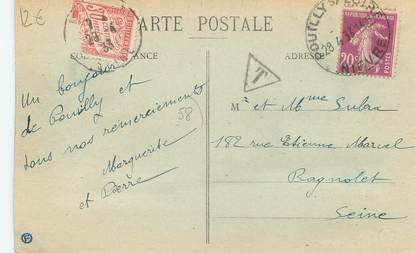 12€
CARTE POSTALE
ADRES
T
20c
NIÈVRE
Un bonjour
de Pouilly et
tous nos remerciements
Marguerite
et Pierre
58
Mr et Mme
182 rue Etienne Marcel
Bagnolet
Seine